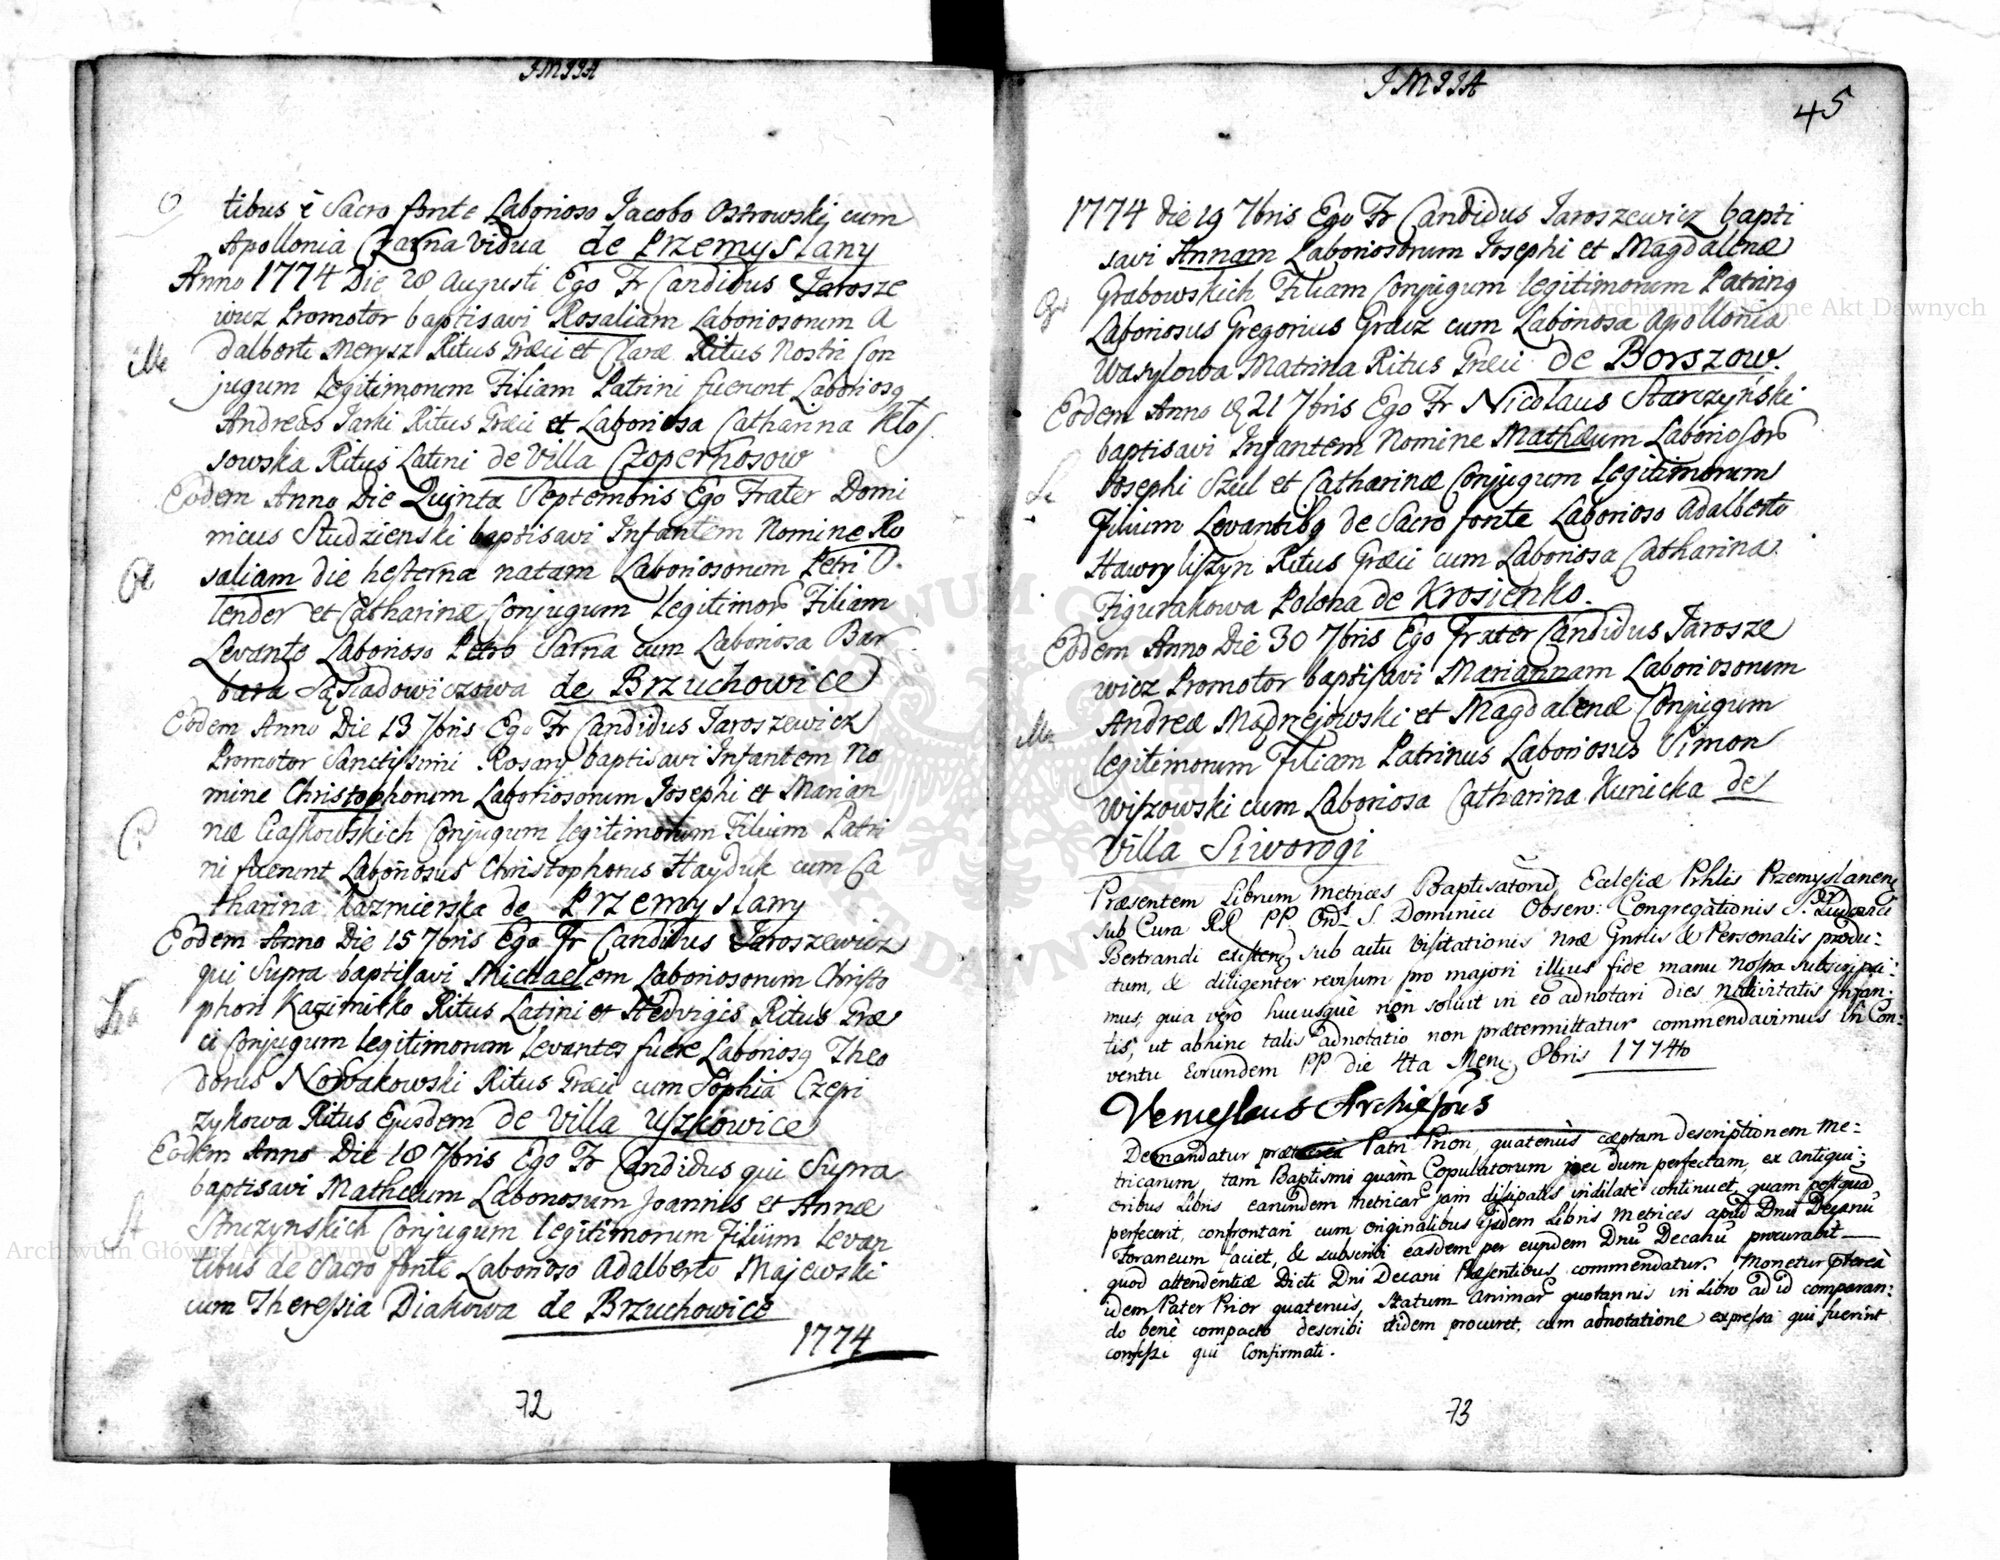 JMJJA
O
tibus è Sacro fonte Laborioso Jacobo Ostrowski cum
Apollonia Czarna Vidua de Przemyslany
Anno 1774 Die 28 Augusti Ego Fr Candidus Jarosze
wicz Promotor baptisavi Rosaliam Laboriosorum A
dalberti Merysz Ritus Græci et Claræ Ritus Nostri Con
Me
jugum legitimorum Filiam Patrini fuerunt Laboriosq
Andreas Jarki Ritus Græci et Laboriosa Catharina Kłos
sowska Ritus Latini de Villa Czopernosow
Eodem Anno Die Quinta Septembris Ego Frater Domi
nicus Studzienski baptisavi Infantem Nomine Ro
saliam die hesterna natam Laboriosorum Petri O.
Ol
lender et Catharinæ Conjugum legitimor Filiam
Levante Laborioso Petro Sarna cum Laboriosa Bar
bara Sąsiadowiczowa de Brzuchowice
Eodem Anno Die 13 7bris Ego Fr Candidus Jaroszewicz
Promotor Sanctissimi Rosary baptisavi Infantem No
mine Christophorum Laboriosorum Josephi et Marian
næ Ciaskowskich Conjugum legitimorum Filium Patri
C
ni fuerunt Laboriosus Christophorus Hayduk cum Ca
tharina Kazmierska de Przemyslany
Eodem Anno Die 15 7bris Ego Fr Candidus Jaroszewicz
qui Supra baptisavi Michaelem Laboriosorum Christo
phori Kazimirko Ritus Latini et Hedvigis Ritus Græ
ci Conjugum legitimorum levantes fuere Laboriosq Theo
dorus Nowakowski Ritus Græci cum Sophia Czepi
zykowa Ritus Ejusdem de Villa Uszkowice
Eodem Anno Die 18 7bris Ego Fr Candidus qui Supra
baptisavi Mathæum Laboriosum Joannis et Annæ
St
Struzynskich Conjugum legitimorum Filium levan
tibus de Sacro fonte Laborioso Adalberto Majewski
cum Theressia Diakowa de Brzuchowice
1774
72
JMJJA
45
1774 die 19 7bris Ego Fr Candidus Jaroszewicz bapti
savi Annam Laboriosorum Josephi et Magdalenæ
Grabowskich Filiam Conjugum legitimorum Patrinq
Gr
Laboriosus Gregorius Gracz cum Laboriosa Apollonia
Wasylowa Matrina Ritus Græci de Borszow.
Eodem Anno 21 7bris Ego Fr Nicolaus Starczyński
baptisavi Infantem Nomine Mathæum Laboriosor
Josephi Szul et Catharinæ Conjugum legitimorum
Filium Levantibq de Sacro fonte Laborioso Adalberto
Hawryliszyn Ritus Græci cum Laboriosa Catharina
Figurakowa Polona de Krosienko.
Eodem Anno Die 30 7bris Ego Frater Candidus Jarosze
wicz Promotor baptisavi Mariannam Laboriosorum
Andreæ Mądrzejowski et Magdalenæ Conjugum
Ma
legitimorum Filiam Patrinus Laboriosus Simon
Wiszowski cum Laboriosa Catharina Kunicka de
Villa Siworogi
Præsentem Librum Metrices Baptisatorū Ecclesiæ Prhlis Przemyslanens
sub Cura RR PP. Ord. S Dominici Observ: Congregationis S. Ludovici
Bertrandi existens, sub actu Visitationis nræ Gnrlis & Personalis produ:
ctum, & diligenter revisum pro majori illius fide manu Nostra subscripsi:
mus, quia verò hucusquè non soluit in eo adnotari dies nativitatis Infan:
tis, ut abhinc talis adnotatio non prætermittatur commendavimus in Con:
ventu Eorundem PP die 4ta Mens 8bris 1774to
Venceslaus Archiepus
Demandatur præterea Patri Priori, quatenùs cæptam descriptionem Me:
tricarum, tam Baptismi quàm Copulatorum nec dum perfectam, ex antiqui:
oribus Libris, earundem Metricar jam dissipatis indilatè continuet, quam postquā
perfecerit, confrontari, cum originalibus ejsdem Libris Metrices apud Dnū Decanū
Foraneum faciet, & subscribi easdem per eundem Dnū Decanū procurabit
quod attendentiæ Dicti Dni Decani Præsentibus commendatur. Monetur ptereà
idem Pater Prior quatenùs, Statum Animar quotannis in Libro ad id comparan:
do benè compacto describi itidem procuret, cum adnotatione expressa qui fuerint
confessi qui Confirmati.
73
Archiwum Główne Akt Dawnych
Archiwum Główne Akt Dawnych